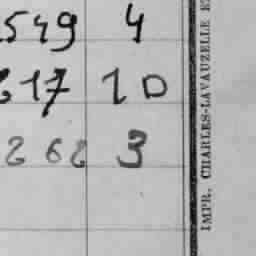 549 4
217 10
262 3
IMPR. CHARLES-LAVAUZELLE E